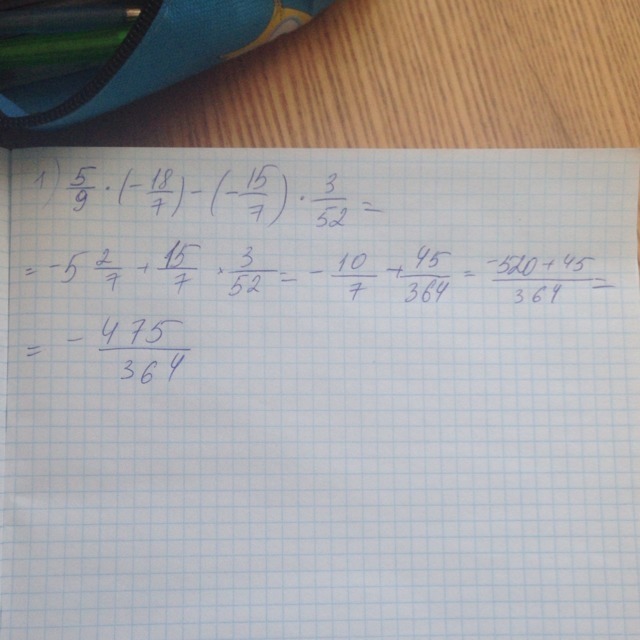 1) 5/9 · (-18/7) - (-15/7) · 3/52 =
= -5 2/7 + 15/7 · 3/52 = - 10/7 + 45/364 = -520+45/364 =
= - 475/364